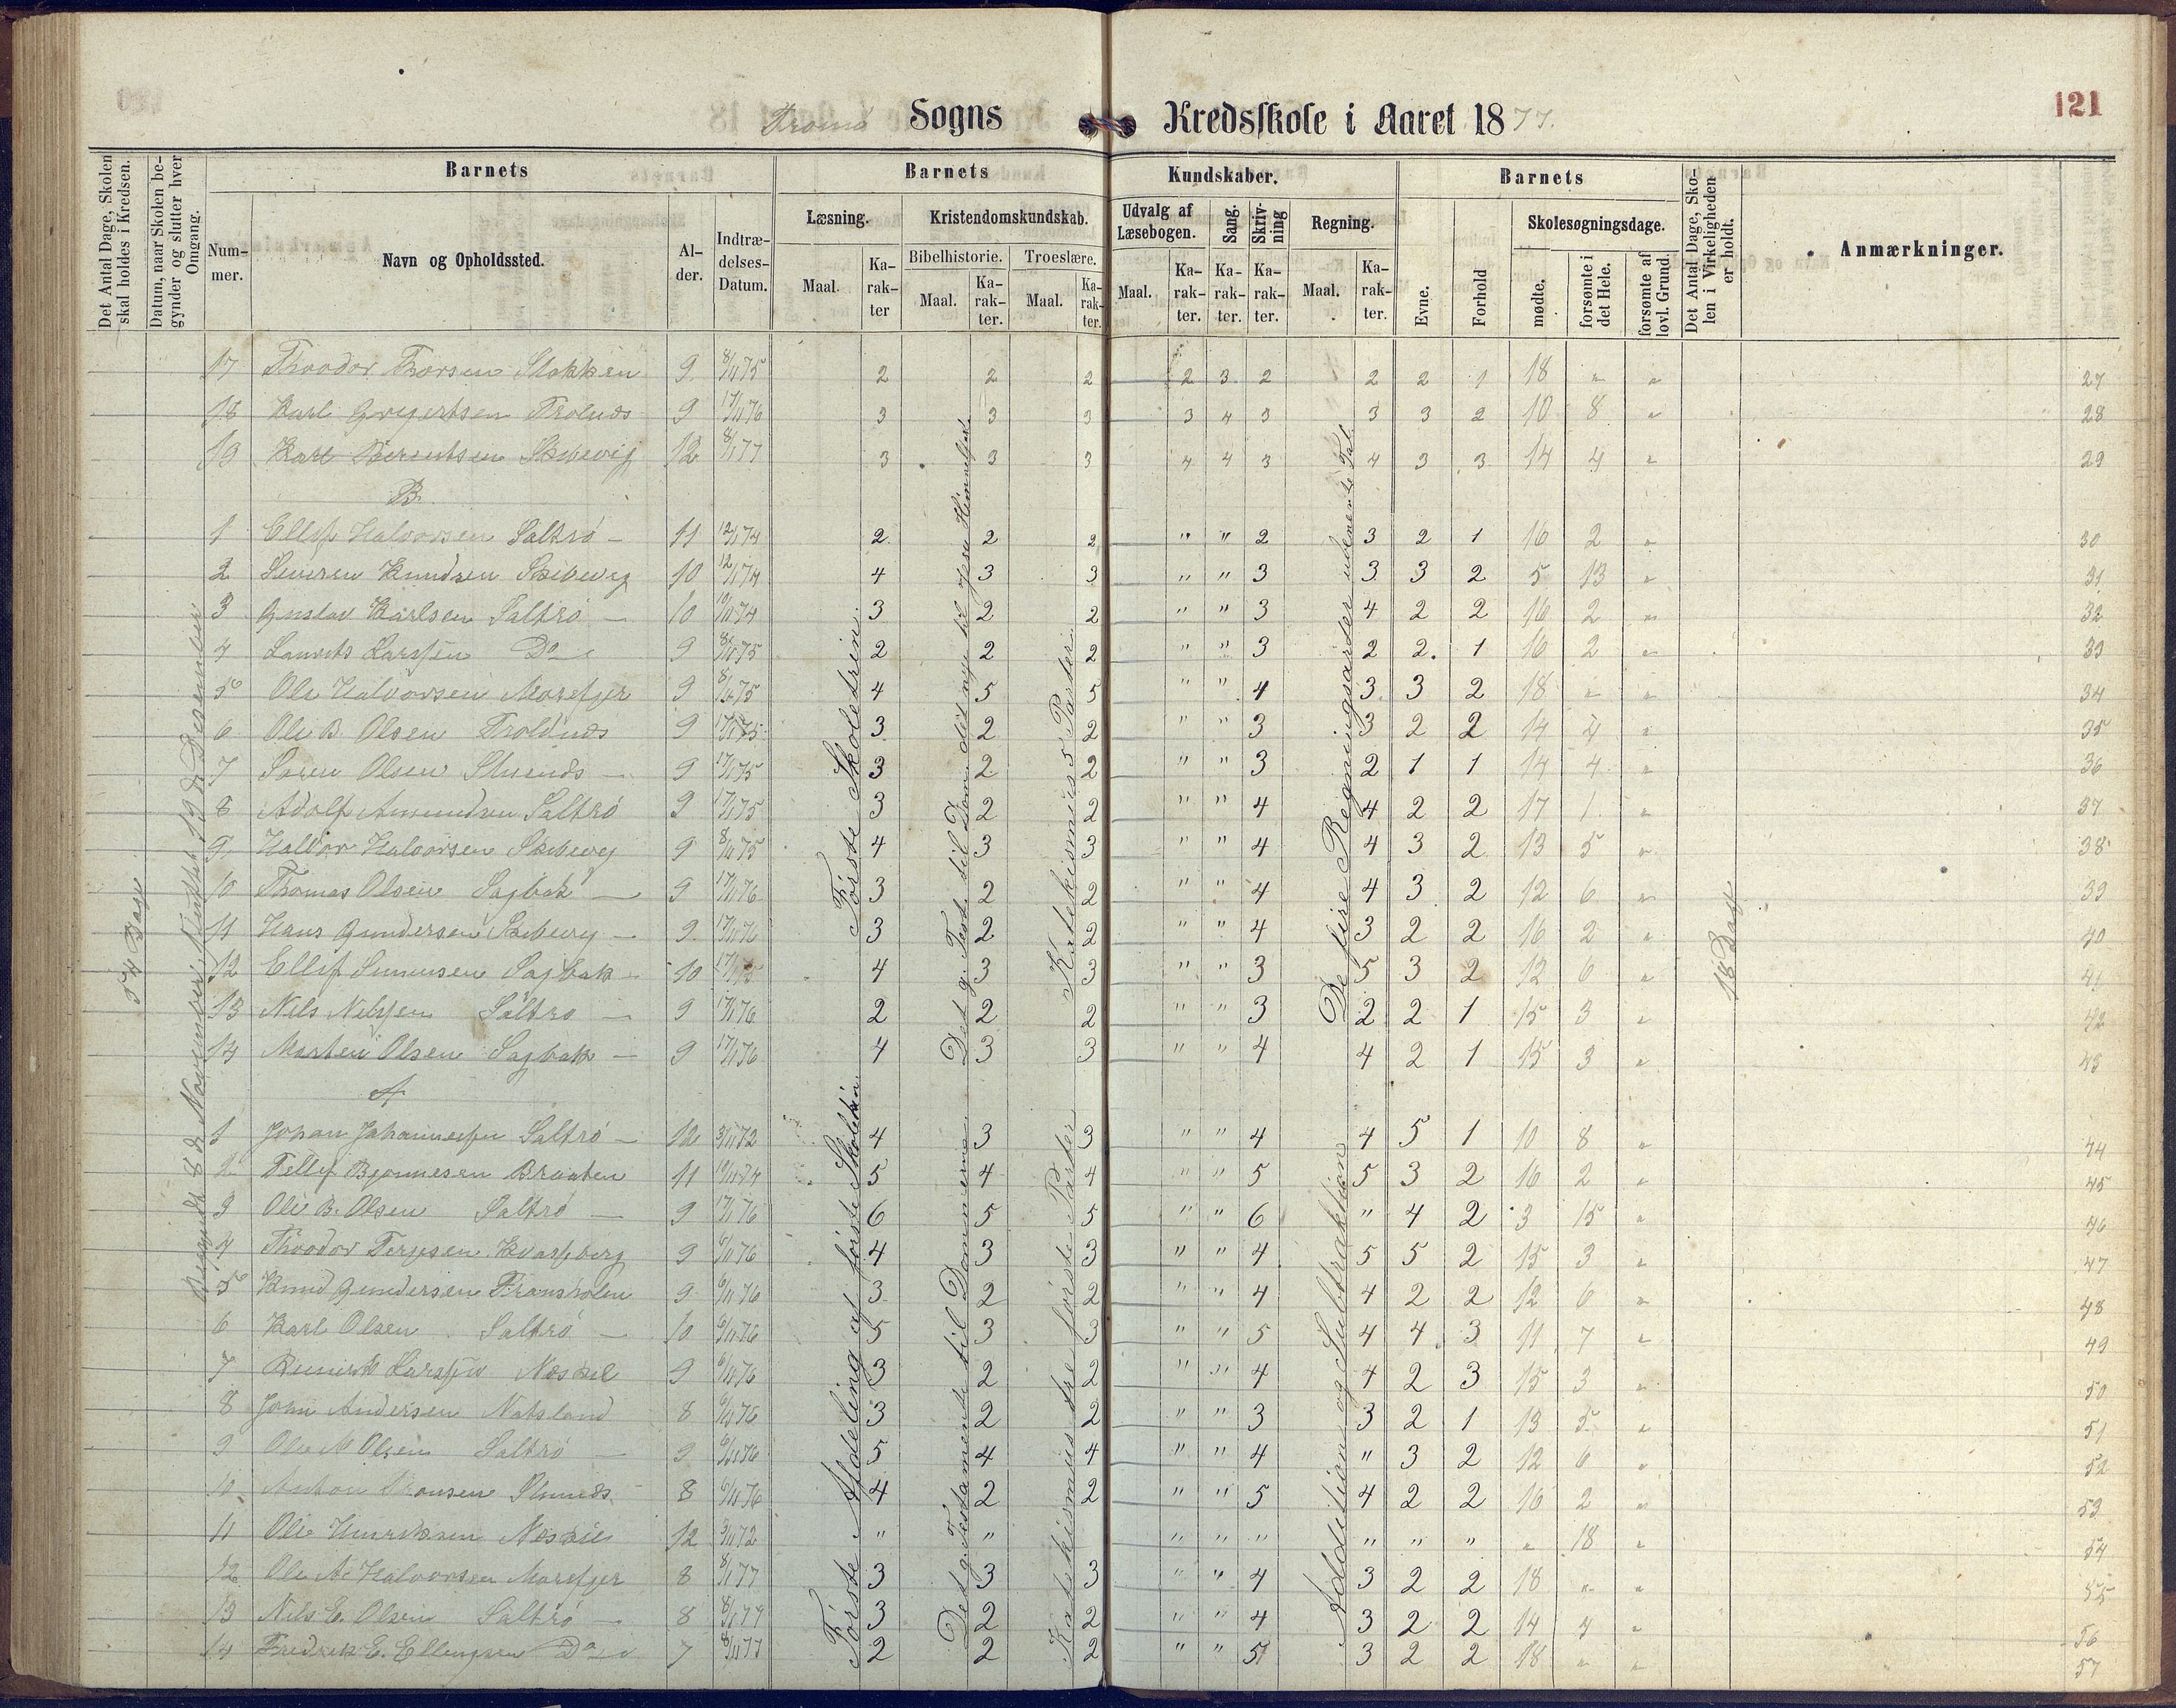 Tromö Sogns Kredsskole i Aaret 1877. 121
Det Antal Dage, Skolen skal holdes i Kredsen.
Datum, naar Skolen begynder og slutter hver Omgang.
Barnets
Nummer.
Navn og Opholdssted.
Alder.
Indtrædelses-Datum.
Barnets
Læsning.
Maal.
Karakter
Kristendomskundskab.
Bibelhistorie.
Maal.
Karakter.
Troeslære.
Maal.
Karakter.
Kundskaber.
Udvalg af Læsebogen.
Maal.
Karakter.
Sang.
Karakter.
Skrivning
Karakter.
Regning.
Maal.
Karakter.
Barnets
Evne.
Forhold
Skolesøgningsdage.
mødte.
forsømte i det Hele.
forsømte af lovl. Grund.
Det Antal Dage, Skolen i Virkeligheden er holdt.
Anmærkninger.
54 Dage
Begyndt 8de November, sluttet 19de December
17 Theodor Thorsen Stokken 9 8/11 75 2 2 2 2 3 2 2 2 1 18 " " 27
18 Karl Gregertsen Trolnæs 9 17/1 76 3 3 3 3 4 3 3 3 2 10 8 " 28
19 Karl Berentsen Skibevig 12 8/1 77 3 3 3 4 4 3 4 3 3 14 4 " 29
B.
1 Ellef Halvorsen Saltrö 11 12/1 74 2 2 2 " " 2 3 2 1 16 2 " 30
2 Severen Knudsen Skibevig 10 12/1 74 4 3 3 " " 3 3 3 2 5 13 " 31
3 Gustav Karlsen Saltrö 10 10/11 74 3 2 2 " " 3 4 2 2 16 2 " 32
4 Laurits Larssen Do 9 8/11 75 2 2 2 " " 3 2 2 1 16 2 " 33
5 Ole Halvorsen Marefjer 9 8/11 75 4 5 5 " " 4 3 3 2 18 " " 34
6 Ole B. Olsen Troldnæs 9 17/1 75 3 2 2 " " 3 3 2 2 14 4 " 35
7 Søren Olsen Stuenæs 9 17/1 75 3 2 2 " " 3 2 1 1 14 4 " 36
8 Adolf Amundsen Saltrö 9 17/1 75 3 2 2 " " 4 4 2 2 17 1 " 37
9 Halvor Halvorsen Skibevig 9 8/11 75 4 3 3 " " 4 4 3 2 13 5 " 38
10 Thomas Olsen Sagbak 9 17/1 76 3 2 2 " " 4 4 3 2 12 6 " 39
11 Hans Gundersen Skibevig 9 17/1 76 3 2 2 " " 4 3 2 2 16 2 " 40
12 Ellef Simensen Sagbak 10 17/1 75 4 3 3 " " 3 5 3 2 12 6 " 41
13 Nils Nilssen Saltrö 9 17/1 76 2 2 2 " " 3 2 2 1 15 3 " 42
14 Morten Olsen Sagbak 9 17/1 76 4 3 3 " " 4 4 2 1 15 3 " 43
A
1 Johan Johannessen Saltrö 12 3/11 72 4 3 3 " " 4 4 5 1 10 8 " 44
2 Tellef Bjonnesen Braaten 11 10/11 74 5 4 4 " " 5 5 3 2 16 2 " 45
3 Ole B. Olsen Saltrö 9 17/1 76 6 5 5 " " 6 " 4 2 3 15 " 46
4 Theodor Terjesen Kvasseberg 9 6/11 76 4 3 3 " " 4 5 5 2 15 3 " 47
5 Knud Gundersen 9 6/11 76 3 2 2 " " 4 4 2 2 12 6 " 48
6 Karl Olsen Saltrö 10 6/11 76 5 3 3 " " 5 4 4 3 11 7 " 49
7 Larssen Neskil 9 6/11 76 3 2 2 " " 4 4 2 3 15 3 " 50
8 John Andersen Natsland 8 6/11 76 3 2 2 " " 3 3 2 1 13 5 " 51
9 Ole M Olsen Saltrö 9 6/11 76 5 4 4 " " 4 " 3 2 12 6 " 52
10 Anton Stuenæs 8 6/11 76 4 2 2 " " 5 4 2 2 16 2 " 53
11 Ole Henriksen Neskil 12 3/11 72 " " " " " " " " " 18 " 54
12 Ole A. Halvorsen Marefjer 8 8/1 77 3 3 3 " " 4 3 2 2 18 " " 55
13 Nils E. Olsen Saltrö 8 8/1 77 3 2 2 " " 4 3 2 2 14 4 " 56
14 Fredrik E. Ellingsen Do 7 8/11 77 2 2 2 " " 5 3 2 2 18 " " 57
Förste Skoletrin.
Det g. Testa til Dom. det nye til Jesu Himmelfart
Katekismus 5 Parter
De fire Regningsarter ubenævnte Tal
18 Dage
Förste Afdeling af förste Skoletrin
Det g. Testamente til Dommerne
Katekismus tre förste Parter
Addition og Subtraktion